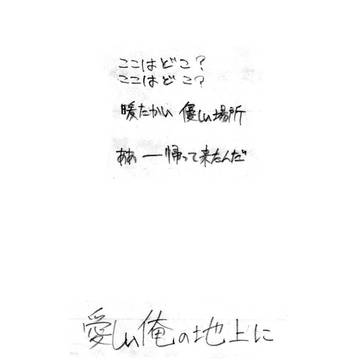 ここはどこ?
ここはどこ?
暖たかい 優しい場所
ああ ー帰って来たんだ
愛しい俺の地上に